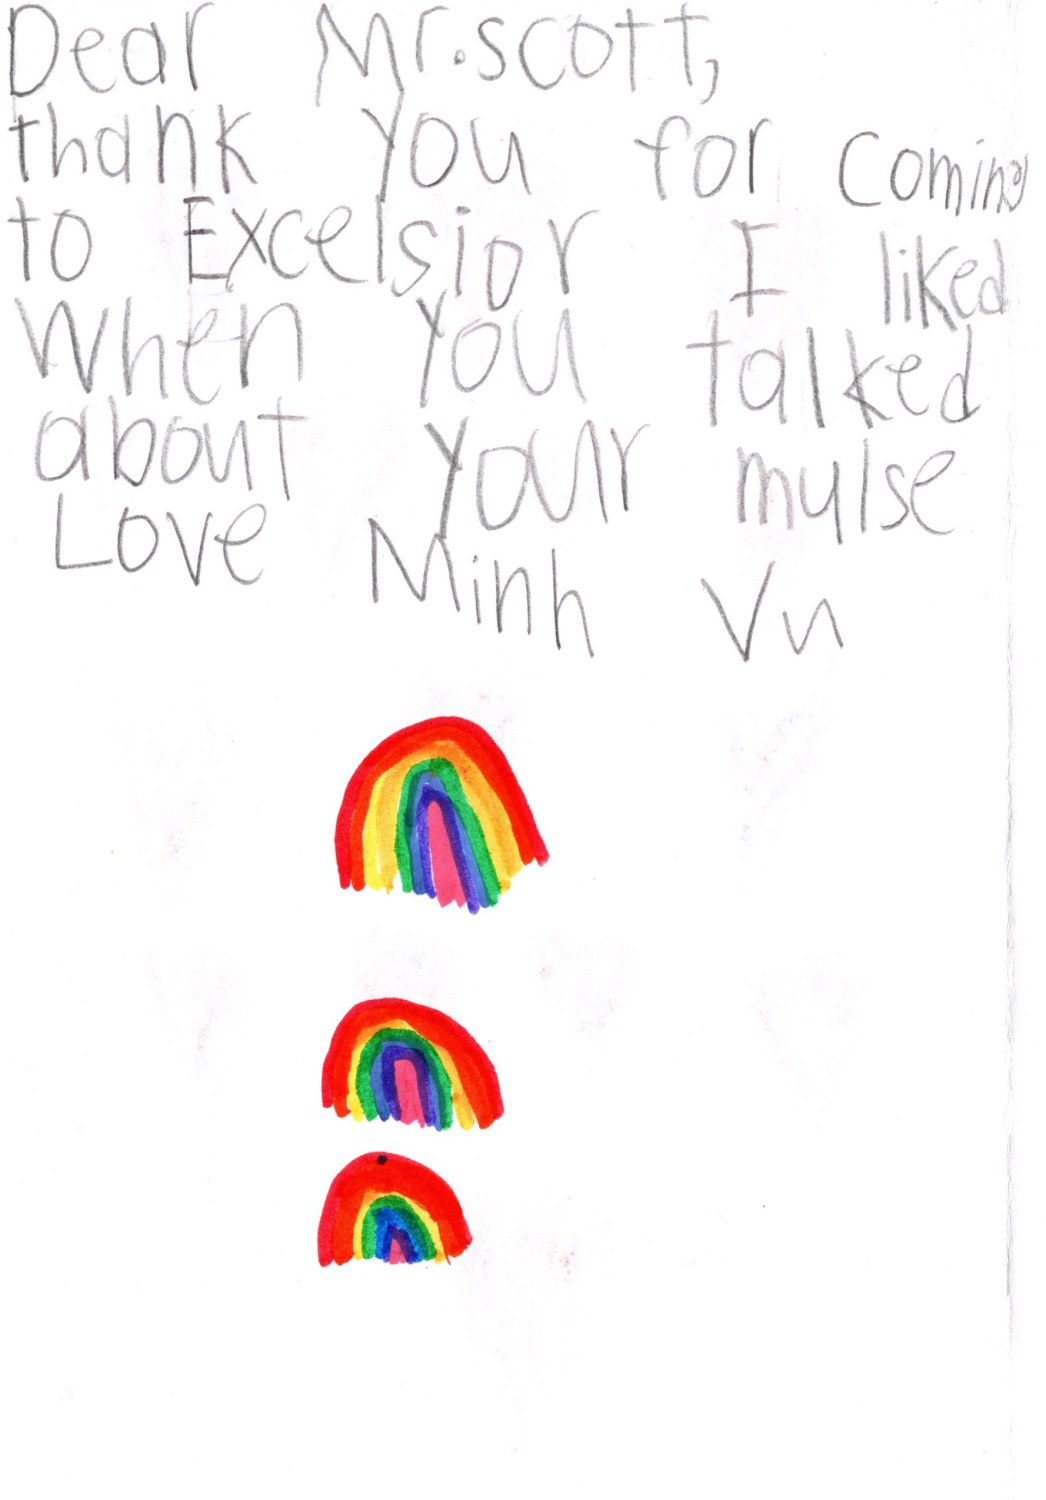 Dear Mr.scott,
thank you for coming
to Excelsior I liked
When you talked
about your mulse
Love Minh Vu